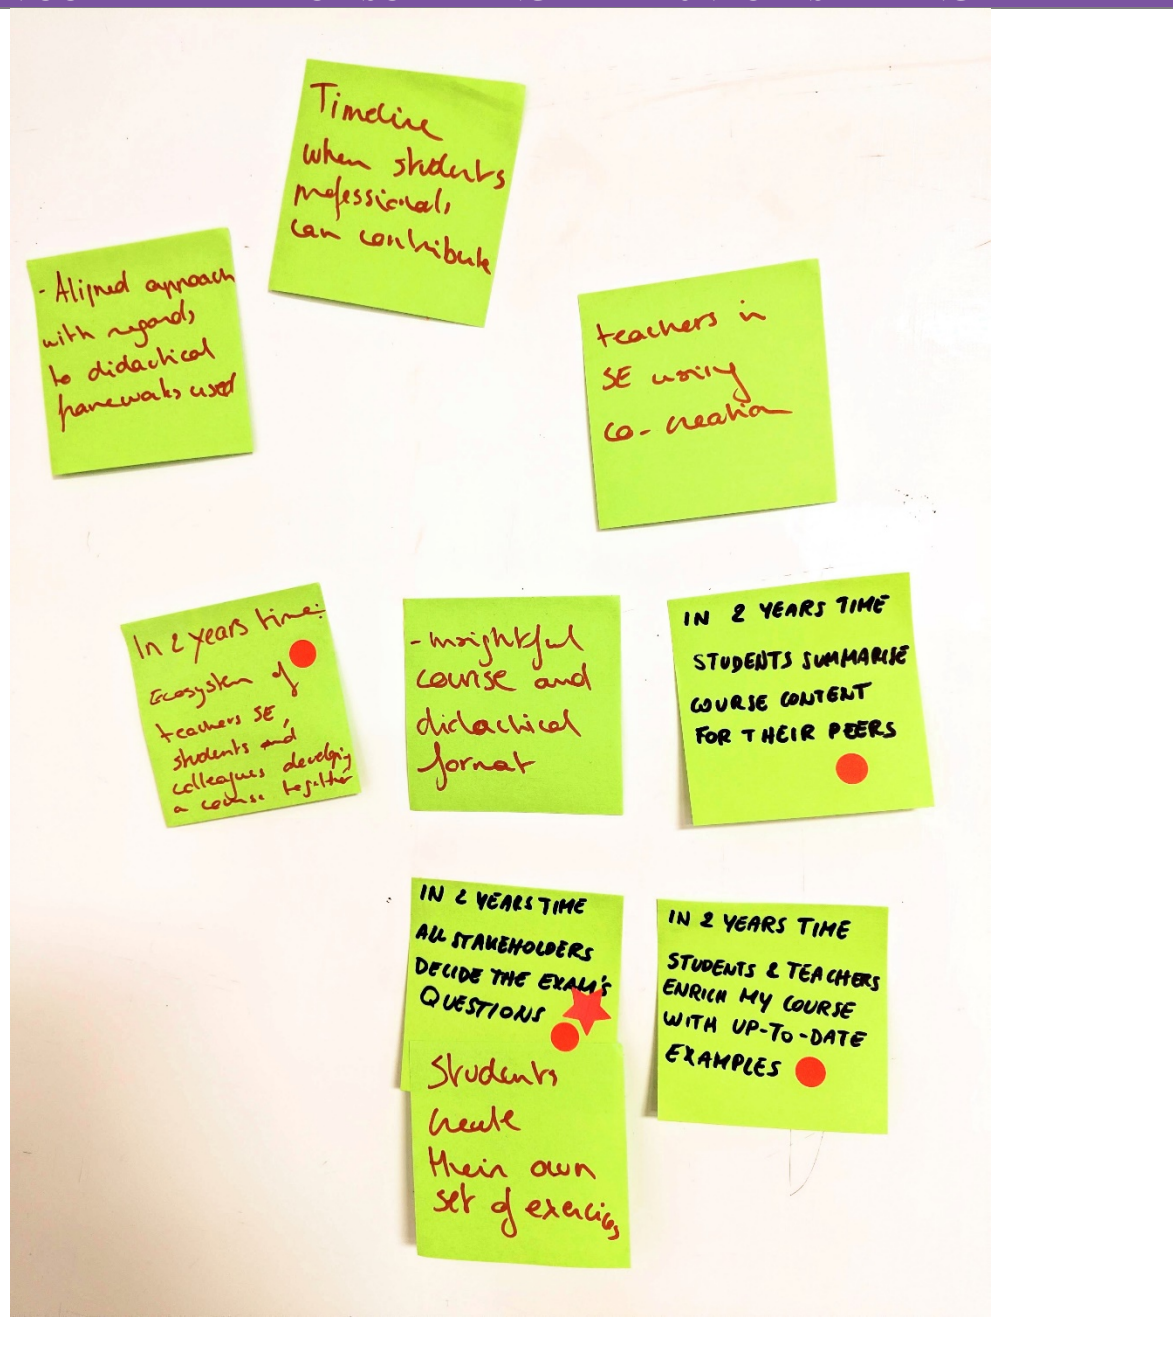 Timeline
when students
professionals
can contribute
- Aligned approach
with regards
to didactical
frameworks used
teachers in
SE using
co-creation
In 2 years time:
Ecosystem of
teachers SE,
students and
colleagues developing
a course together
- insightful
course and
didactical
format
IN 2 YEARS TIME
STUDENTS SUMMARISE
COURSE CONTENT
FOR THEIR PEERS
IN 2 YEARS TIME
ALL STAKEHOLDERS
DECIDE THE EXAM'S
QUESTIONS
Students
create
their own
set of exercises
IN 2 YEARS TIME
STUDENTS & TEACHERS
ENRICH MY COURSE
WITH UP-TO-DATE
EXAMPLES